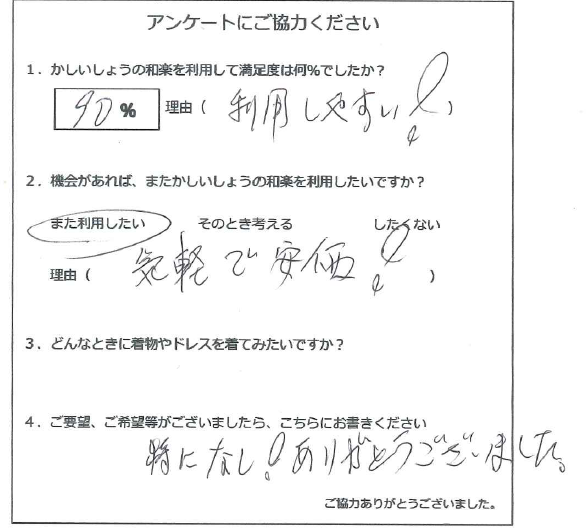 アンケートにご協力ください
1．かしいしょうの和楽を利用して満足度は何%でしたか？
90% 理由（ 利用しやすい! ）
2．機会があれば、またかしいしょうの和楽を利用したいですか？
また利用したい そのとき考える したくない
理由（ 気軽で安価! ）
3．どんなときに着物やドレスを着てみたいですか？
4．ご要望、ご希望等がございましたら、こちらにお書きください
特になし!ありがとうございました。
ご協力ありがとうございました。